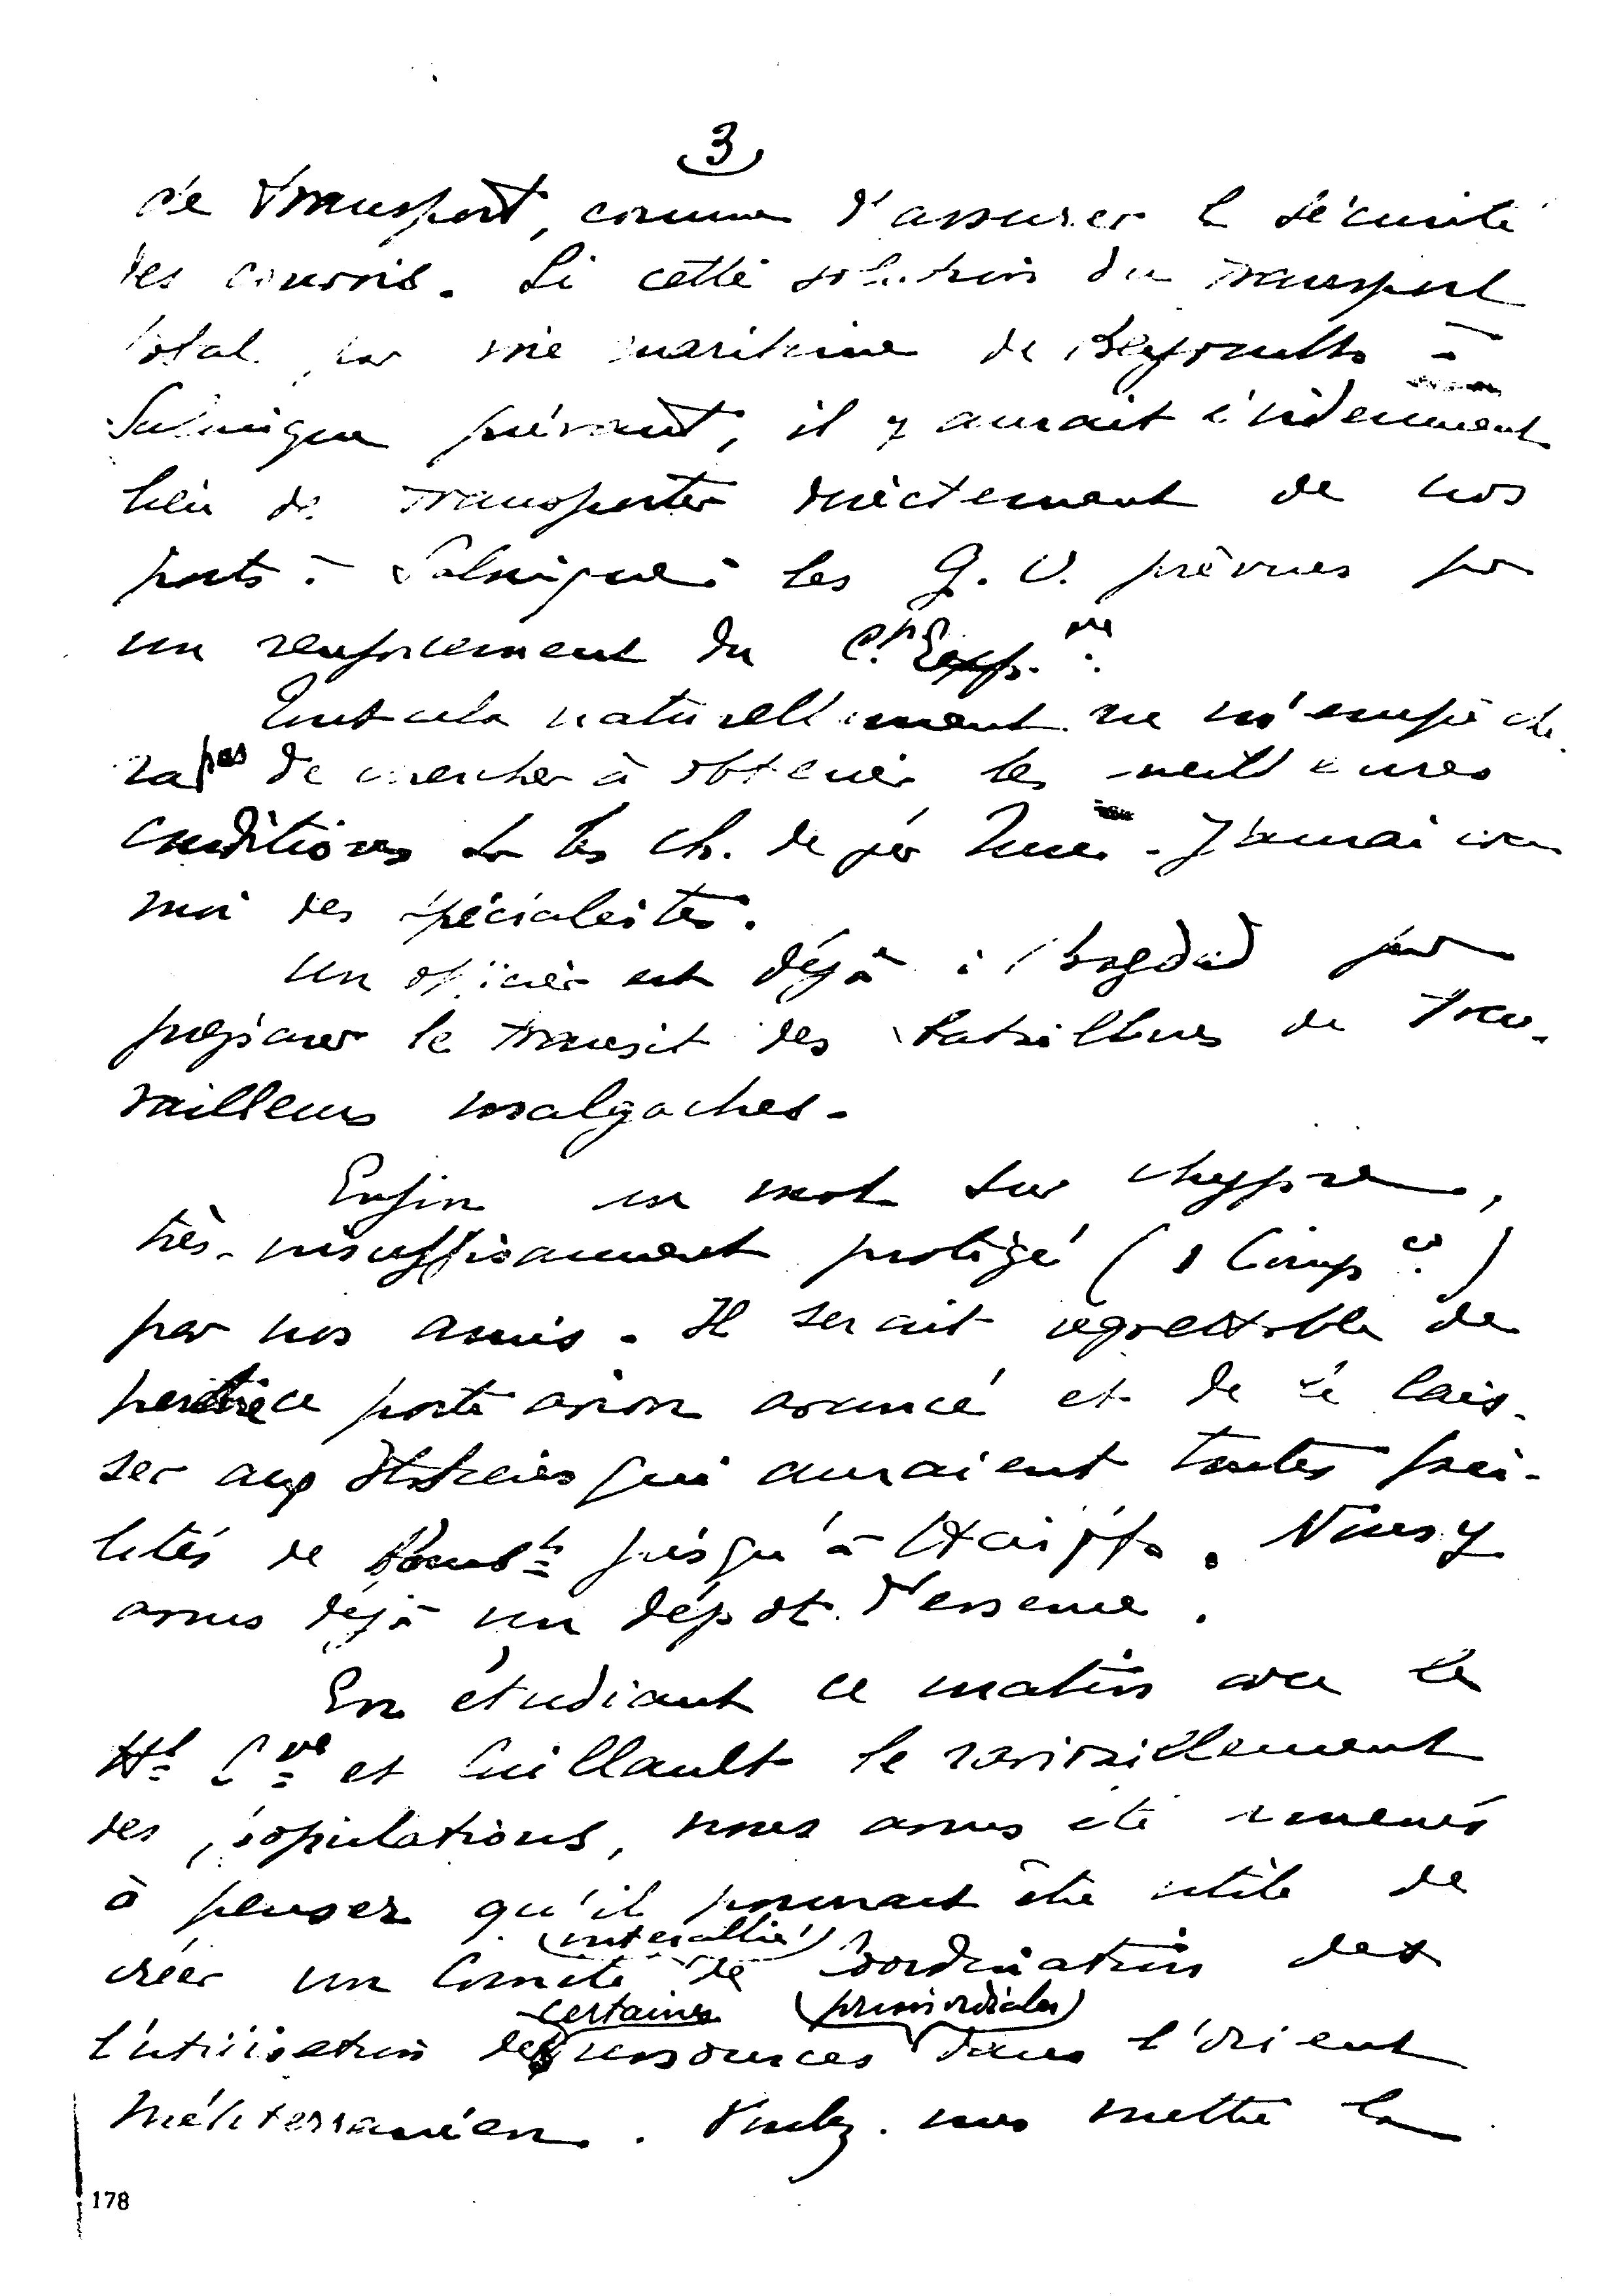 3
de transport, comme d'assurer la sécurité
des convois. Si cette solution du transport
total par voie maritime de Beyrouth à
Salonique prévaut, il y aurait évidemment
lieu de transporter directement de nos
ports à Salonique les G. U. prévues pour
un renforcement du Cps Exp.re
Tout cela naturellement ne m'empêche
ra pas de chercher à obtenir les meilleures
conditions sur les ch. de fer Turcs. J'aurai avec
moi des spécialistes.
Un officier est déjà à Bagdad pour
préparer le transit des bataillons de Tra-
vailleurs malgaches.
Enfin un mot sur Chypre,
très insuffisamment protégé (1 Comp.ie)
par nos amis. Il serait regrettable de
perdre ce porte avion avancé et de le lais-
ser aux Italiens qui auraient toutes faci-
lités de Bomb.t jusqu'à Haïffa. Nous y
avons déjà un dépôt d'essence.
En étudiant ce matin avec le
Ht C.re et Cuillault le ravitaillement
des populations, nous avons été amenés
à penser qu'il pourrait être utile de
créer un Comité interallié de Coordination de
l'utilisation de certaines ressources primordiales dans l'Orient
Méditerranéen. Voulez-vous mettre la
178